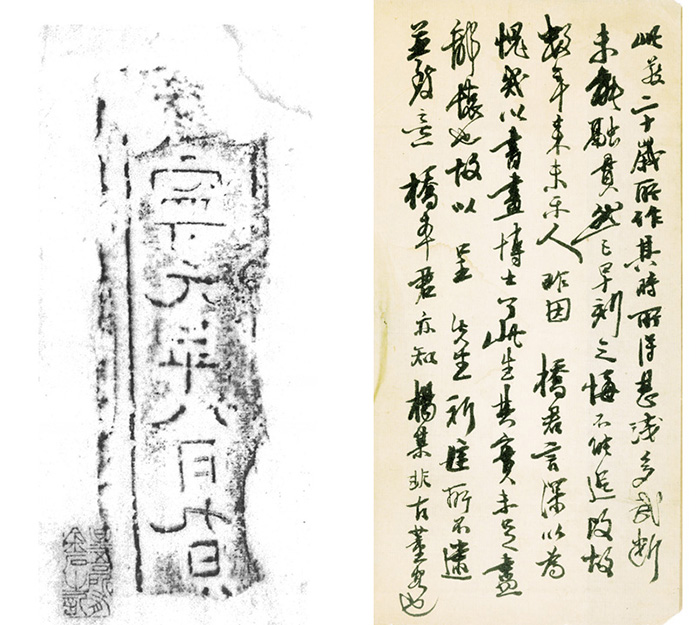 寧六年八月廿日
此二十歲所作其時所得甚淺多武斷
未能融貫然已早刻之悔不能追改故
數年來未示人昨因 橋君言深以為
愧以書畫博士了此生其實未足盡
鄙懷也故以呈 先生祈匡所不逮
並致意 橋本君亦知楊集非古董客也